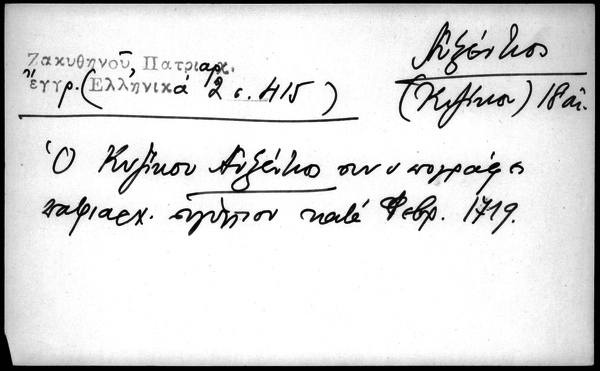 Ζακυθηνοῦ, Πατριαρχ.
ἔγγρ. (Ἑλληνικά 2 σ. 415)
Αὐξέντιος
(Κυζίκου) 18 αἰ.
Ὁ Κυζίκου Αὐξέντιος συνυπογράφει
πατριαρχ. σιγίλλιον κατά Φεβρ. 1719.